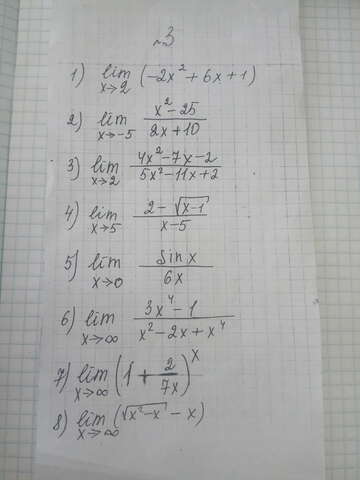 №3
1) lim x→2 (-2x² + 6x + 1)
2) lim x→-5 (x² - 25)/(2x + 10)
3) lim x→2 (4x² - 7x - 2)/(5x² - 11x + 2)
4) lim x→5 (2 - √(x-1))/(x - 5)
5) lim x→0 sin x/(6x)
6) lim x→∞ (3x⁴ - 1)/(x² - 2x + x⁴)
7) lim x→∞ (1 + 2/(7x))ˣ
8) lim x→∞ (√(x² - x) - x)